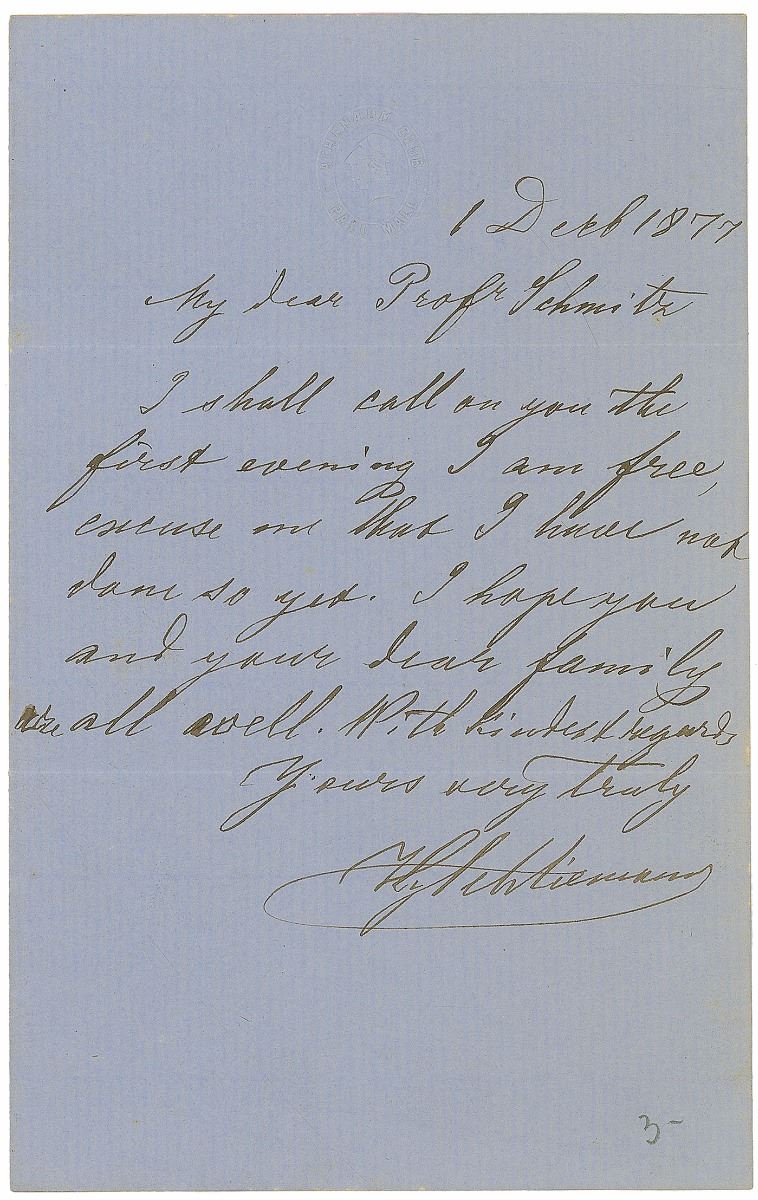 ATHENAEUM CLUB
PALL MALL
1 Decb 1877
My dear Profr Schmitz
I shall call on you the
first evening I am free,
excuse me that I have not
done so yet. I hope you
and your dear family
are all well. With kindest regards
Yours very truly
Hy Schliemann
3-